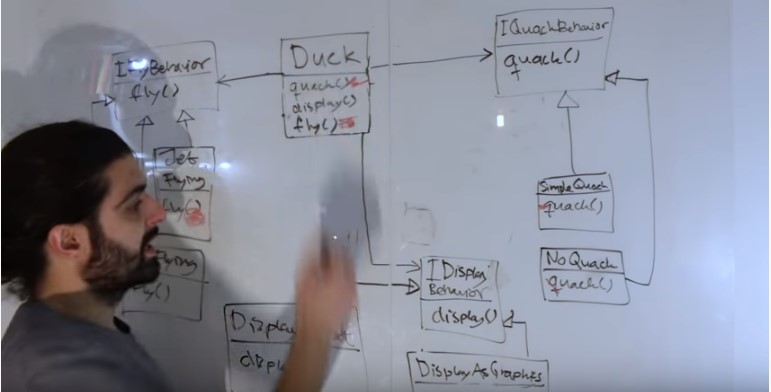 IFlyBehavior
fly()
Duck
quack()
display()
fly()
IQuackBehavior
quack()
Jet
Flying
fly()
SimpleQuack
quack()
NoQuack
quack()
IDisplay
Behavior
display()
DisplayAsGraphics